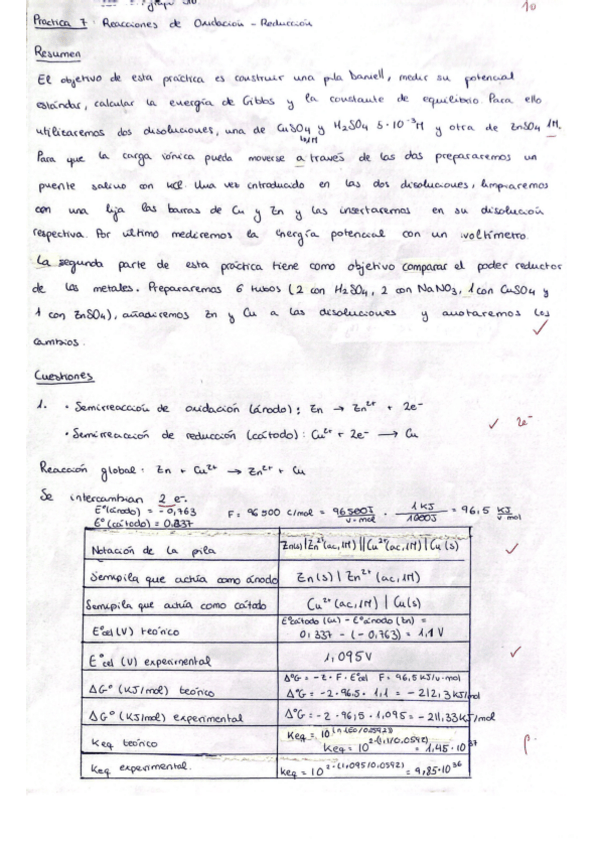 grupo
10
Práctica 7: Reacciones de Oxidación - Reducción
Resumen
El objetivo de esta práctica es construir una pila Daniell, medir su potencial
estándar, calcular la energía de Gibbs y la constante de equilibrio. Para ello
utilizaremos dos disoluciones, una de CuSO4 y H2SO4 5·10⁻³M y otra de ZnSO4 1M.
Para que la carga iónica pueda moverse a través de las dos prepararemos un
puente salino con KCl. Una vez introducido en las dos disoluciones, limpiaremos
con una lija las barras de Cu y Zn y las insertaremos en su disolución
respectiva. Por último mediremos la energía potencial con un voltímetro.
La segunda parte de esta práctica tiene como objetivo comparar el poder reductor
de los metales. Prepararemos 6 tubos (2 con H2SO4, 2 con NaNO3, 1 con CuSO4 y
1 con ZnSO4), añadiremos Zn y Cu a las disoluciones y anotaremos los
cambios.
Cuestiones
1. • Semirreacción de oxidación (ánodo): Zn → Zn²⁺ + 2e⁻
2e⁻
• Semirreacción de reducción (cátodo): Cu²⁺ + 2e⁻ → Cu
Reacción global: Zn + Cu²⁺ → Zn²⁺ + Cu
Se intercambian 2 e⁻.
E°(ánodo) = -0,763 F = 96500 C/mol = 96500J / V·mol · 1KJ / 1000J = 96,5 KJ / V mol
E°(cátodo) = 0.337
Notación de la pila Zn(s)|Zn²⁺(ac,1M)||Cu²⁺(ac,1M)|Cu(s)
Semipila que actúa como ánodo Zn(s) | Zn²⁺(ac,1M)
Semipila que actúa como cátodo Cu²⁺(ac,1M) | Cu(s)
E°cel (V) teórico E°cátodo (Cu) - E°ánodo (Zn) =
0,337 - (-0,763) = 1,1V
E°cel (V) experimental 1,095V
ΔG° (KJ/mol) teórico Δ°G = -2·F·E°cel F = 96,5 KJ/V·mol
Δ°G = -2·96.5·1,1 = -212,3 KJ/mol
ΔG° (KJ/mol) experimental Δ°G = -2·96,5·1,095 = -211,33 KJ/mol
Keq teórico Keq = 10
Keq = 10^2·(1,1/0.0592) = 1,45·10³⁷
Keq experimental. Keq = 10^2·(1,095/0.0592) = 9,85·10³⁶